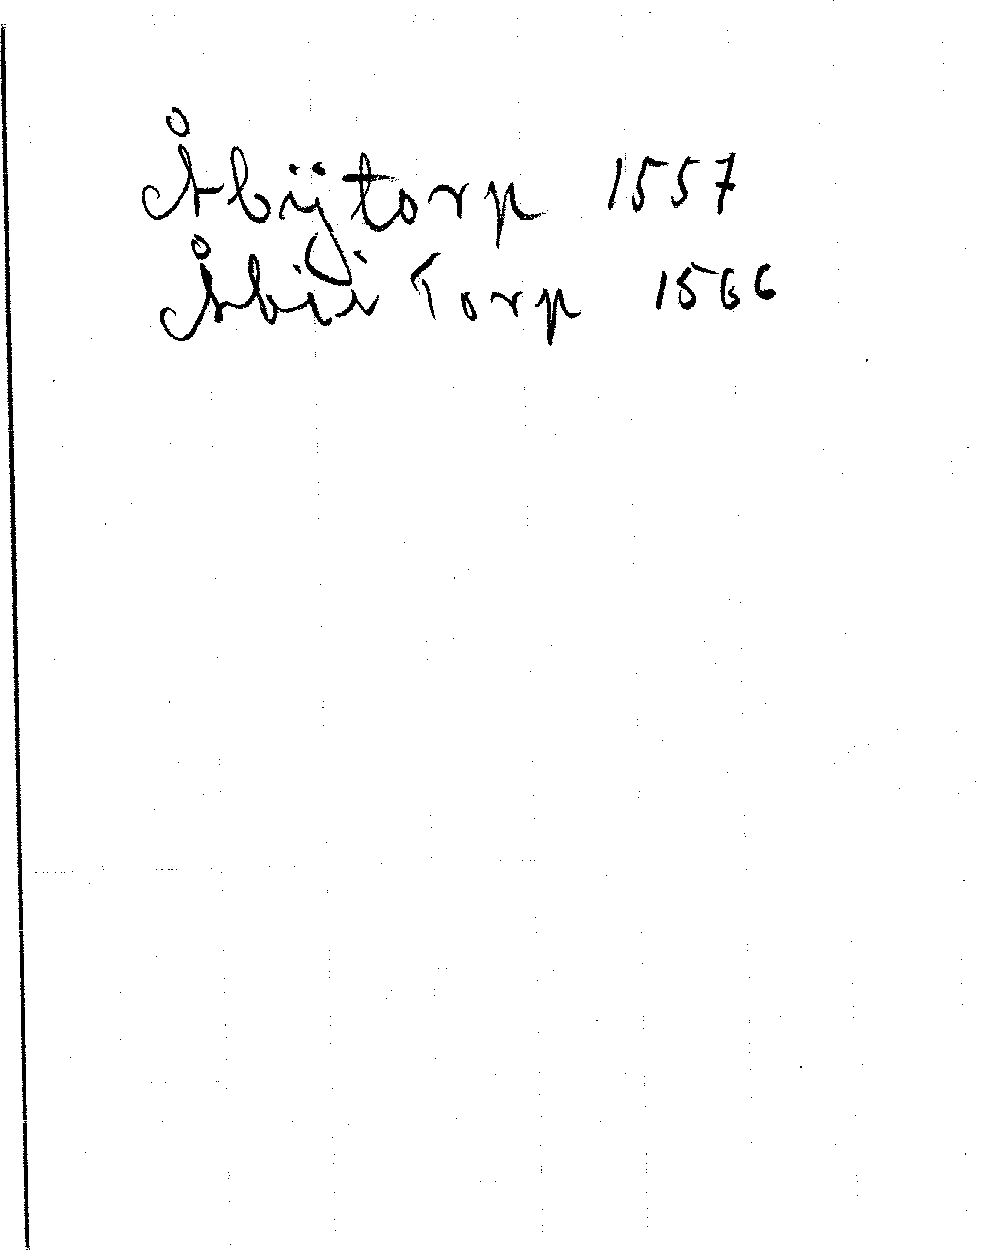 Åbijtorp 1557
Åbii Torp 1566